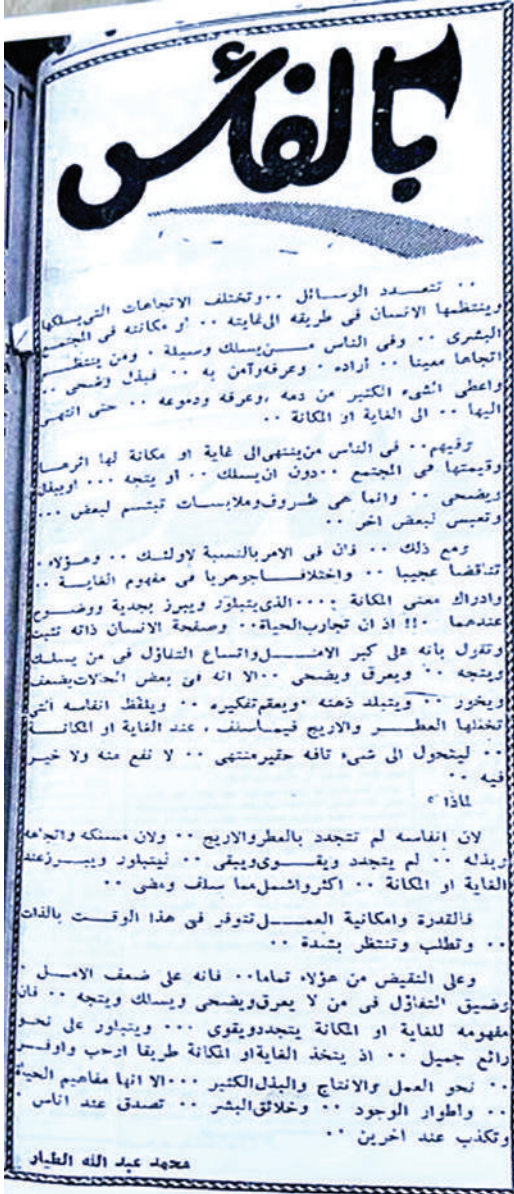 بالفأس
.. تتعـــدد الوســائل .. وتختلف الاتجاهات التى يسلكها
وينتظمها الانسان فى طريقه الى غايته .. أو مكانته فى المجتمع
البشرى .. وفى الناس مـــن يسلك وسيلة . ومن ينتظـــم
اتجاها معينا .. أراده . وعرفه وآمن به .. فبذل وضحى ..
واعطى الشىء الكثير من دمه ، وعرقه ودموعه .. حتى انتهـى
اليها .. الى الغاية او المكانة ..
وفيهم .. فى الناس من ينتهى الى غاية او مكانة لها اثرهــا
وقيمتها فى المجتمع .. دون ان يسلك .. أو يتجه ... او يبذل
ويضحى .. وانما هى ظــروف وملابســات تبتسم لبعض ...
وتعبس لبعض اخر ..
ومع ذلك .. فان فى الامر بالنسبة لاولئـك .. وهــؤلاء .
تناقضا عجيبا .. واختلافــا جوهريا فى مفهوم الغايــة ..
وادراك معنى المكانة .... الذى يتبلور ويبرز بجدية ووضــوح
عندهما .!! اذ ان تجارب الحياة .. وصفحة الانسان ذاته تثبت
وتقول بانه على كبر الامـــل واتساع التفاؤل فى من يسلك
ويتجه .. ويعرق ويضحى .. الا انه فى بعض الحالات يضعف
ويخور .. ويتبلد ذهنه ، ويعقم تفكيره .. ويلفظ انفاسه التى
تخللها العطـــر والاريج فيمــا سلف ، عند الغاية او المكانــة
.. ليتحول الى شىء تافه حقير منتهى .. لا نفع منه ولا خيـر
فيه ..
لماذا ؟
لان انفاسه لم تتجدد بالعطر والاريج .. ولان مسلكه واتجاهه
وبذله .. لم يتجدد ويقــوى ويبقى .. ليتبلور ويبــرز عند
الغاية او المكانة .. اكثر واشمل مما سلف ومضى ..
فالقدرة وامكانية العمـــل تتوفر فى هذا الوقــت بالذات
.. وتطلب وتنتظر بشدة ..
وعلى النقيض من هؤلاء تماما .. فانه على ضعف الامــل .
وضيق التفاؤل فى من لا يعرق ويضحى ويسلك ويتجه .. فان
مفهومه للغاية او المكانة يتجدد ويقوى ... ويتبلور على نحـو
رائع جميل .. اذ يتخذ الغاية او المكانة طريقا ارحب واوفــر
.. نحو العمل والانتاج والبذل الكثير ... الا انها مفاهيم الحياة
.. واطوار الوجود .. وخلائق البشر .. تصدق عند اناس .
وتكذب عند اخرين ..
محمد عبد الله الطيار